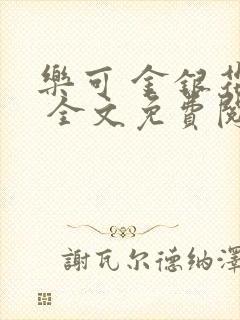 樂可 金銀花
全文免費閱
謝瓦尔德納澤